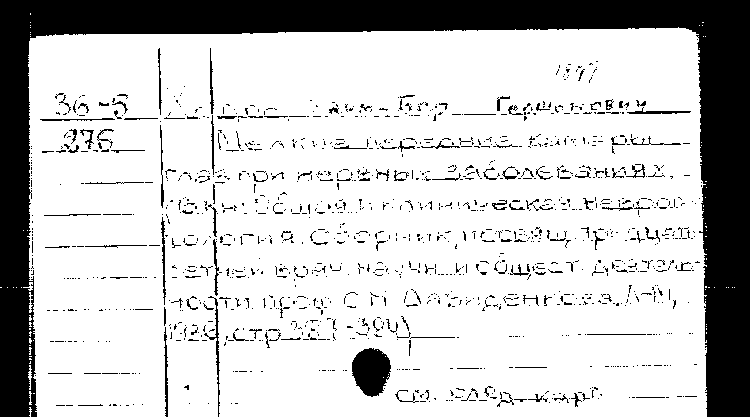 1897
36-5 Гершонович
276 Мелкие передние камеры
глаз при нервных заболеваниях.
(В кн: Общая и клиническая невроп-
тология. Сборник, посвящ. тридцати-
летней врач. научн. и общест. деятель-
ности проф С Н Давиденкова. Л-М,
стр 387-394)
см. след. карт